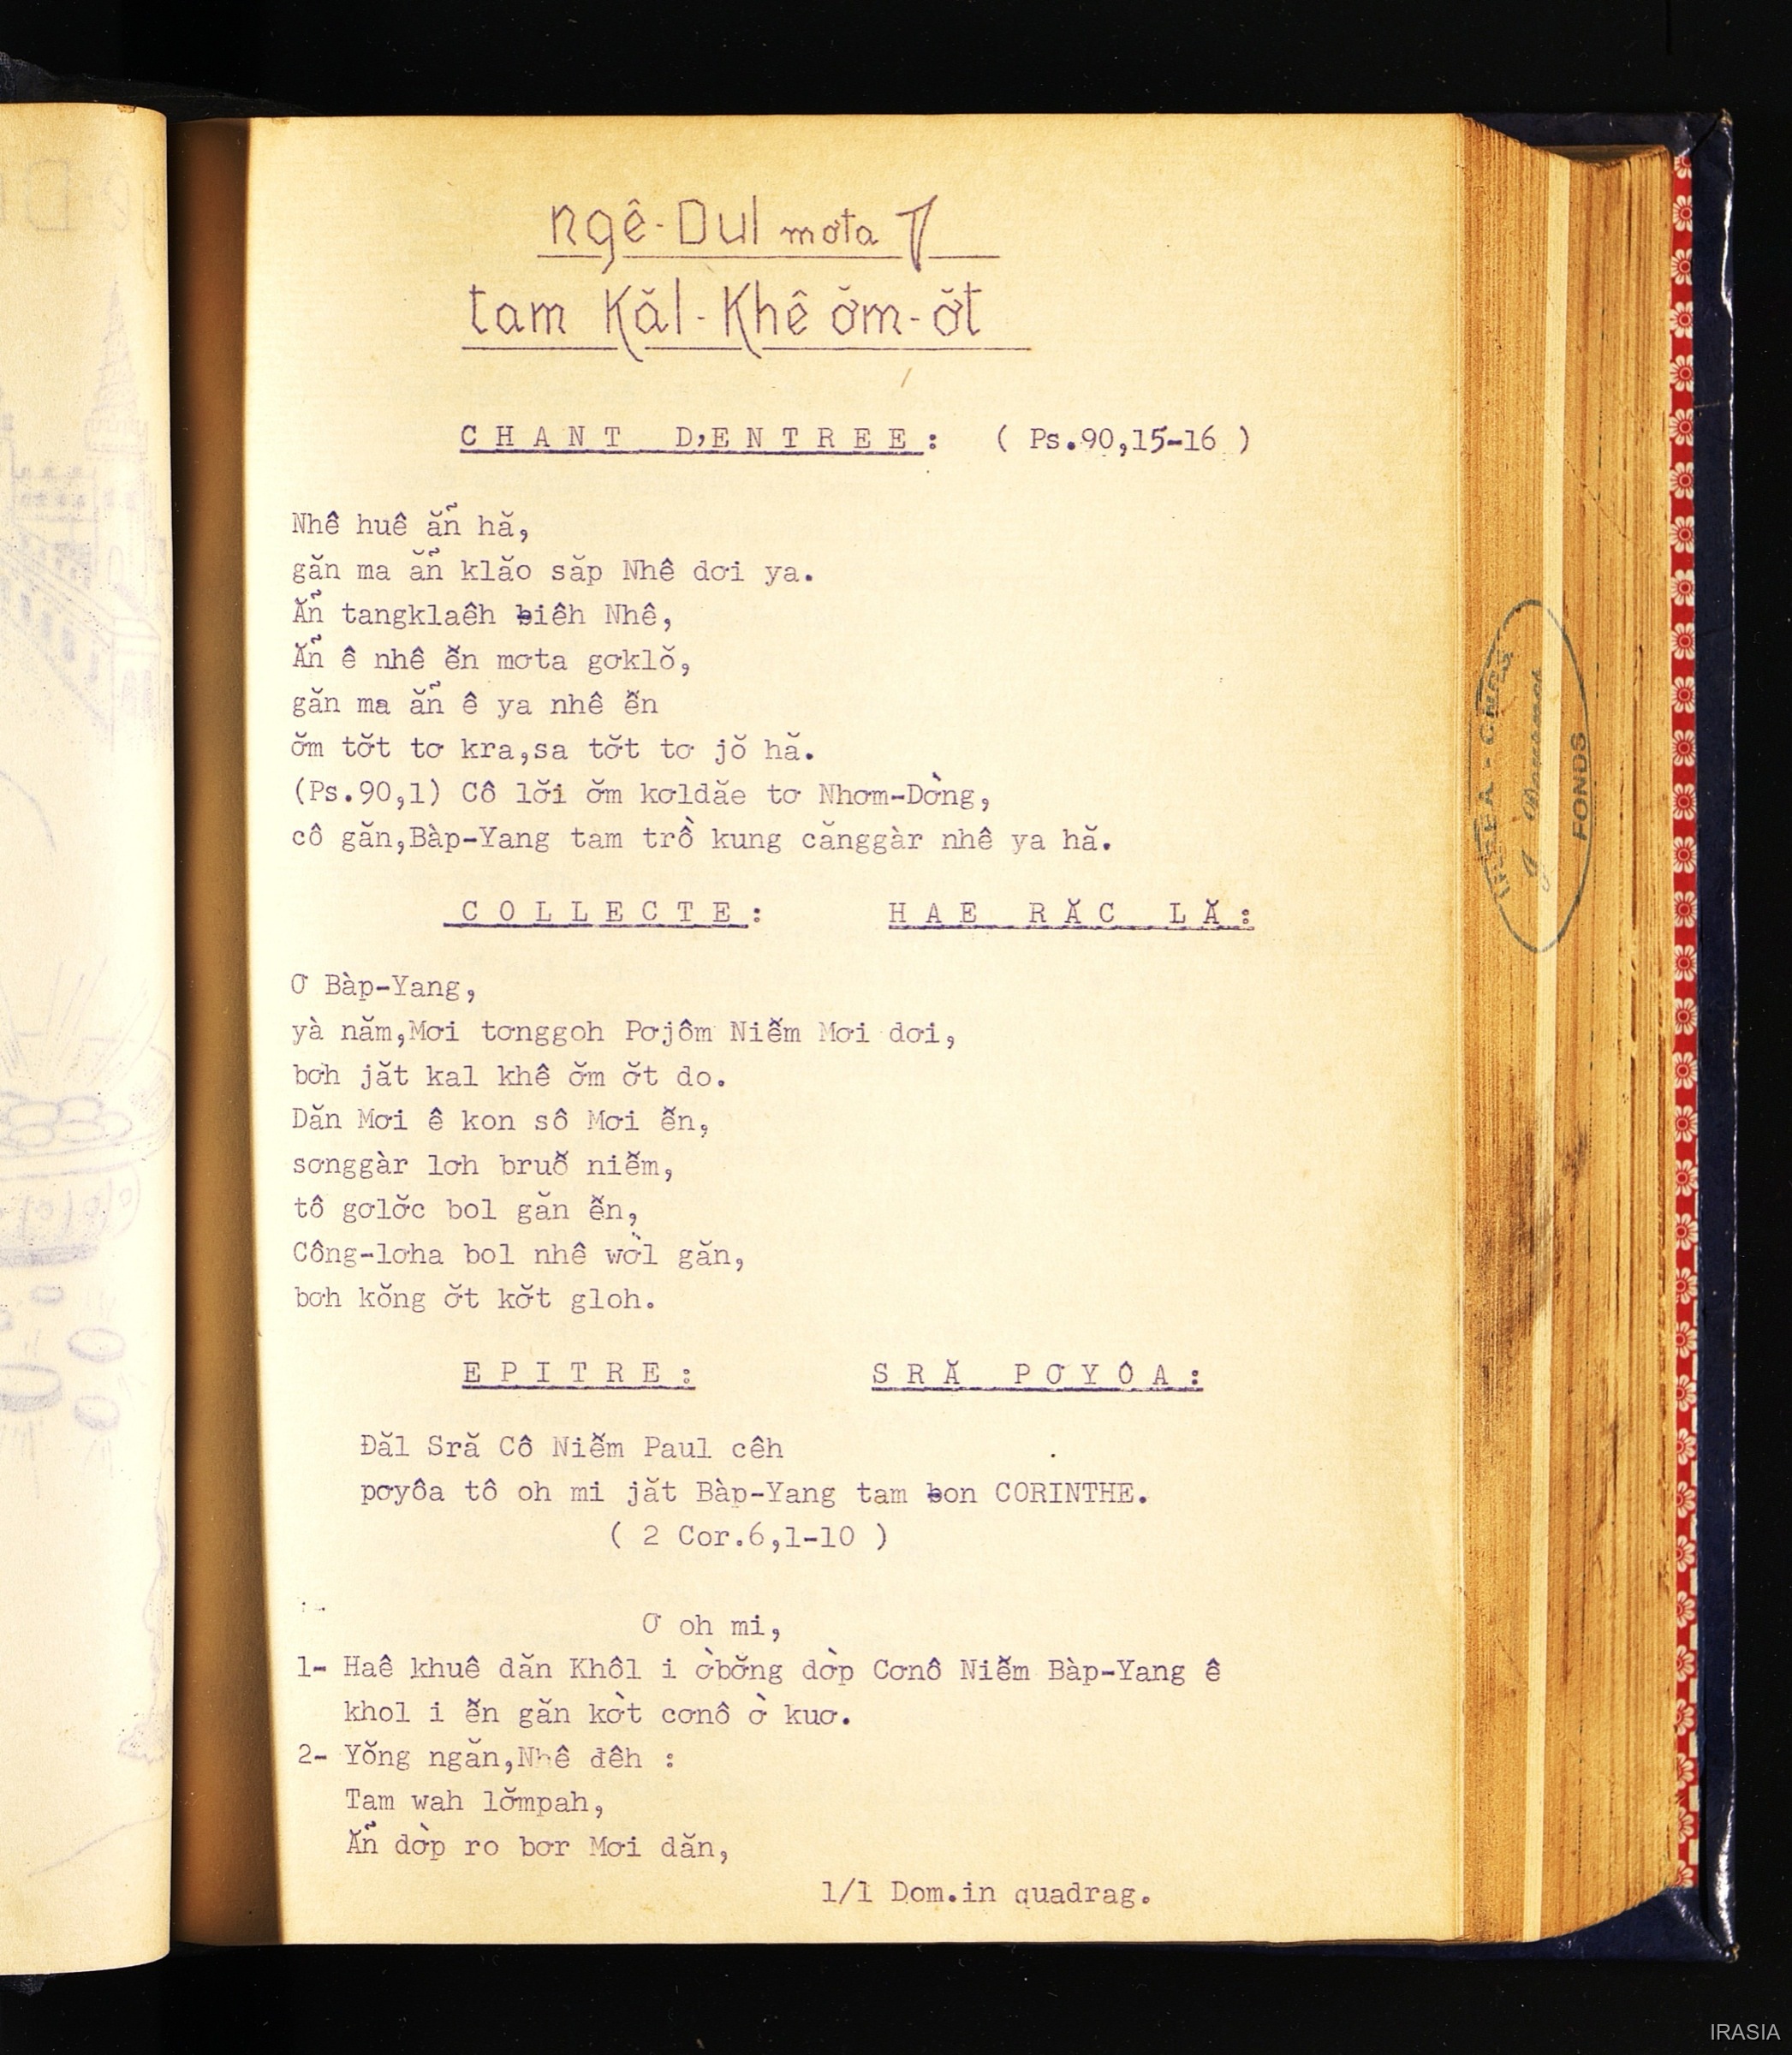 ngê-Dul mơta 1
tam Kăl-Khê ơ̆m-ơ̆t
CHANT D,ENTREE: ( Ps.90,15-16 )
Nhê huê ăñ hă,
găn ma ăñ klăo săp Nhê dơi ya.
Ăñ tangklaêh ƀiêh Nhê,
Ăñ ê nhê ê̆n mơta gơklŏ,
găn ma ăñ ê ya nhê ê̆n
ơ̆m tơ̆t tơ kra,sa tơ̆t tơ jŏ hă.
(Ps.90,1) Cô lơ̆i ơ̆m kơldăe tơ Nhơm-Dờng,
cô găn,Bàp-Yang tam trồ kung cănggàr nhê ya hă.
COLLECTE: HAE RĂC LĂ:
Ơ Bàp-Yang,
yà năm,Mơi tơnggoh Pơjôm Niê̆m Mơi dơi,
bơh jăt kal khê ơ̆m ơ̆t do.
Dăn Mơi ê kon sô Mơi ê̆n,
sơnggàr lơh bruô̆ niê̆m,
tô gơlơ̆c bol găn ê̆n,
Công-lơha bol nhê wờl găn,
bơh kŏng ơ̆t kơ̆t gloh.
EPITRE: SRĂ PƠYÔA:
Đăl Sră Cô Niê̆m Paul cêh
pơyôa tô oh mi jăt Bàp-Yang tam ƀon CORINTHE.
( 2 Cor.6,1-10 )
Ơ oh mi,
1- Haê khuê dăn Khôl i ờbơ̆ng dờp Cơnô Niê̆m Bàp-Yang ê
khol i ê̆n găn kờt cơnô ờ kuơ.
2- Yŏng ngăn,Nhê đêh :
Tam wah lơ̆mpah,
Ăñ dờp ro bơr Mơi dăn,
1/1 Dom.in quadrag.
FONDS
IRASIA